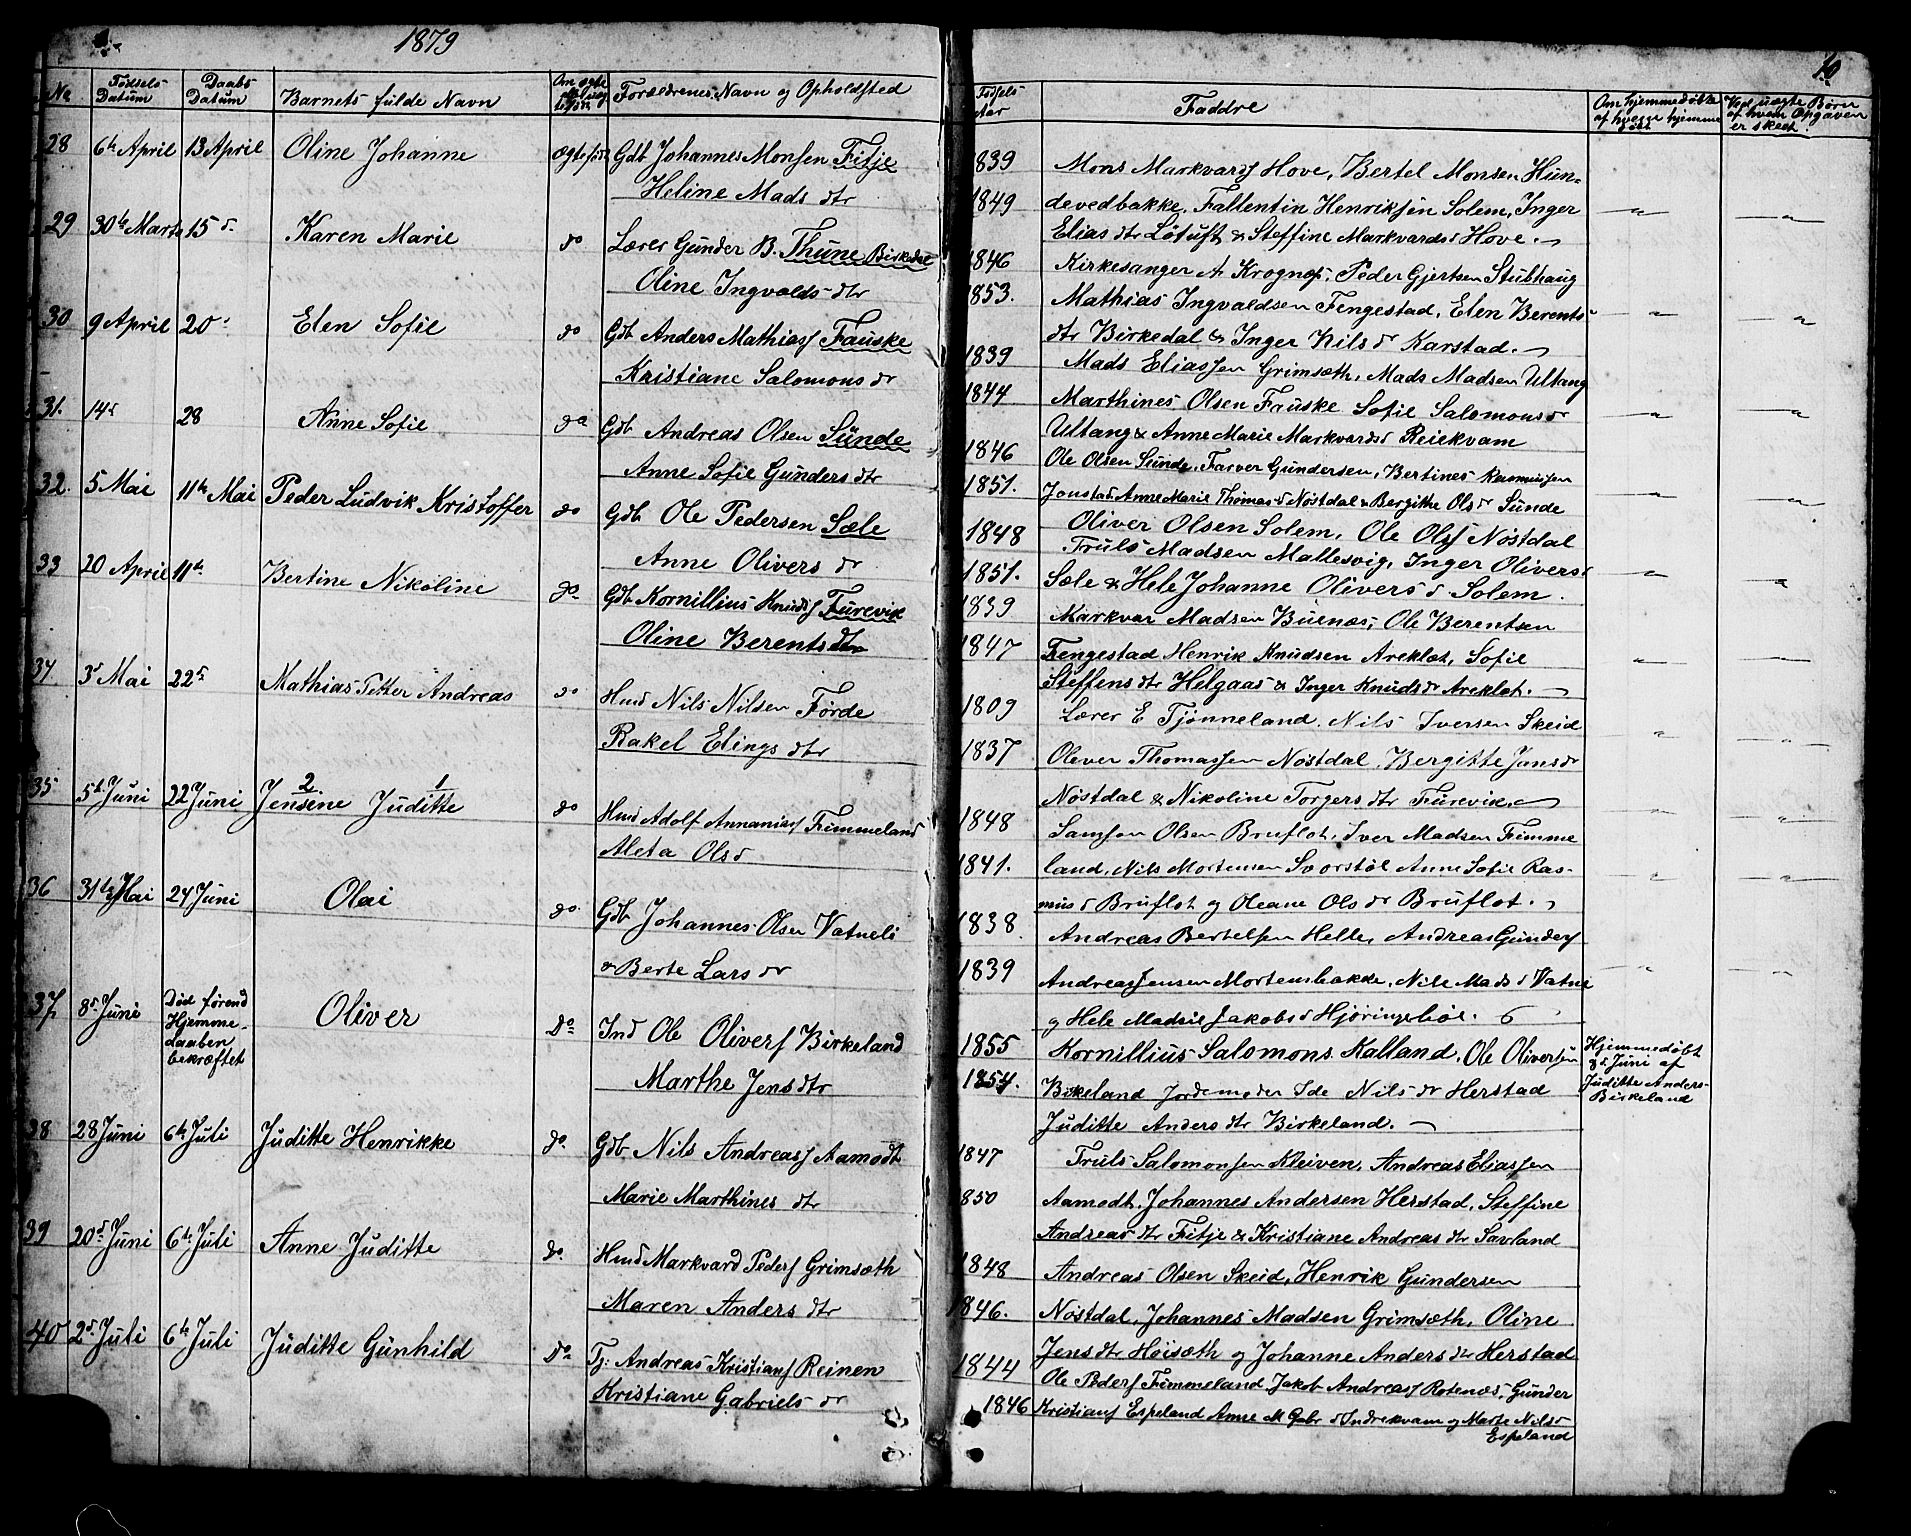 1879
No
Fødsels Datum
Daabs Datum
Barnets fulde Navn
Om ægte
Forældrenes Navn og Opholdsted
28 6te April 13 April Oline Johanne Ægtefødt Gdb Johannes Monsen Fitje
Heline Mads dtr
29 30te Marts 15 d. Karen Marie do Lærer Gunder B. Thune Birkedal
Oline Ingvalds dtr
30 9 April 20 Elen Sofie do Gdb Anders Mathiasf Fauske
Kristiane Salomons dr
31. 14d 28 Anne Sofie do Gdb Andreas Olsen Sünde
Anne Sofie Gunders dtr
32. 5 Mai 11te Mai Peder Ludvik Kristoffer do Gdb Ole Pedersen Sæle
Anne Olivers dr
33 20 April 11te Bertine Nikoline do Gdb Kornillius Knudsf Furevik
Oline Berents dtr
34 3d Mai 22d Mathias Petter Andreas do Hmd Nils Nilsen Førde
Rakel Elings dtr
35 5t Juni 22 Juni 2 1
Jensine Juditte do Hmd Adolf Annaniasf Frimmeland
Aleta Olsd
36 31te Mai 24 Juni Olai do Gdb Johannes Olsen Vatneli
& Berte Lars dr
37 8d Juni Død førend Hjemmedaaben bekræftet Oliver Do Ind Ole Oliversf Birkeland
Marthe Jens dtr
38 28 Juni 6te Juli Juditte Henrikke do Gdb Nils Andreasf Aamodt
Marie Marthines dtr
39 20d Juni 6te Juli Anne Juditte do Hmd Markvard Pedersf Grimsæth
Maren Anders dtr
40 2d Juli 6te Juli Juditte Gunhild Do Tj: Andreas Kristiansf Reinen
Kristiane Gabriels dr
10
Fødsels Aar
Faddre
Om hjemmedøbte af hvem hjemme døbt
Ved uægte Børn af hvem Opgaven er skeet
1839 Mons Markvardsf Hove, Bertel Monsen Hun-
1849 devedbakke. Fallentin Henriksen Solem, Inger
Elias dtr Løtuft & Steffine Markvardsd Hove.
1846 Kirkesanger A Krognæs, Peder Gjertsen Stubhaug
1853. Mathias Ingvaldsen Fengestad, Elen Berents
dtr Birkedal & Inger Nilsd Karstad.
1839 Mads Eliassen Grimsæth, Mads Madsen Ultang
1844 Marthines Olsen Fauske Sofie Salomonsdr
Ultang & Anne Marie Markvardsd Reiekvam
1846 Ole Olsen Sünde, Farver Gundersen, Bertines Rasmussen
1851. Jonstad Anne Marie Thomasd Nöstdal & Bergitte Olsdr Sünde
1848 Oliver Olsen Solem, Ole Olsf Nöstdal
Truls Madsen Mallesvig, Inger Oliversd
1851. Sæle & Hele Johanne Oliversd Solem.
1839 Markvar Madsen Buenæs, Ole Berentsen
1847 Fengestad Henrik Knudsen Areklet, Sofie
Steffens dtr Helgaas & Inger Knudsdr Areklet.
1809 Lærer E Tjønneland, Nils Iversen Skeid
1837 Olever Thomassen Nöstdal, Bergitte Jansdr
Nöstdal & Nikoline Torgers dtr Furevik,
1848 Samson Olsen Bruflot, Iver Madsen Frimme
1841. land, Nils Mortensen Svorstøl Anne Sofie Ras-
musd Bruflot og Oleane Olsdr Bruflot.
1838 Andreas Bertelsen Helle, Andreas Gundersf
1839 Andreas Jensen Mortensbakke, Nils Madsd Vatne
og Hele Madsie Jakobsd Hjøringsbøe.
1855 Kornillius Salomons Kalland, Ole Oliversen Hjemmedøbt
1854. Birkeland Jordemoder Ide Nilsdr Herstad 8d Juni af
Juditte Anders dtr Birkeland. Juditte Anders- Birkeland
1847 Truls Salomonsen Kleiven, Andreas Eliassen
1850 Aamodt, Johannes Andersen Herstad, Steffine
Andreas dtr Fitje & Kristiane Andreas dtr Savland
1848 Andreas Olsen Skeid, Henrik Gundersen
1846. Nöstdal, Johannes Madsen Grimsæth, Oline
Jens dtr Høisæth og Johanne Anders dtr Herstad
1844 Ole Pedersf Frimmeland Jakob Andreasf Rotenæs, Gunder
1846 Kristiansf Espeland Anne M Gabr d Indrekvam og Marte Nilsd
Espeland